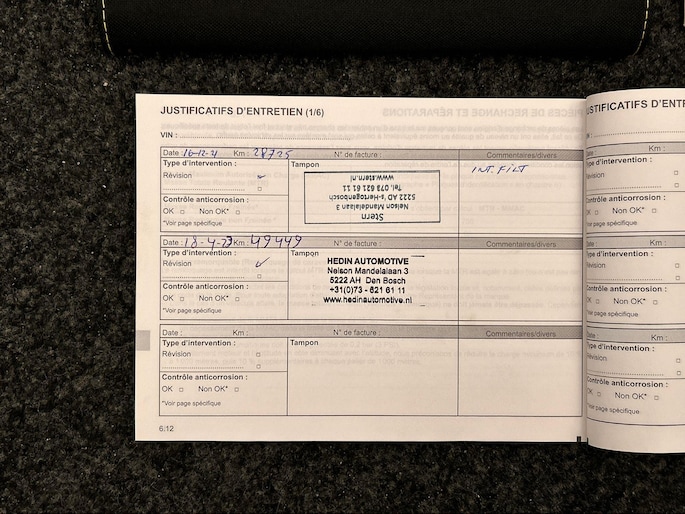 JUSTIFICATIFS D'ENTRETIEN (1/6)
VIN :
Date : 16-12-21 Km : 28725 N° de facture : Commentaires/divers
Type d'intervention : Tampon INT. FILT
Révision ✓
Stern
Nelson Mandelalaan 3
5222 AD 's-Hertogenbosch
Tel. 073 621 61 11
www.stern.nl
Contrôle anticorrosion :
OK □ Non OK* □
*Voir page spécifique
Date : 18-4-23 Km : 49449 N° de facture : Commentaires/divers
Type d'intervention : Tampon
Révision ✓
HEDIN AUTOMOTIVE
Nelson Mandelalaan 3
5222 AH Den Bosch
+31(0)73 - 621 61 11
www.hedinautomotive.nl
Contrôle anticorrosion :
OK □ Non OK* □
*Voir page spécifique
Date : Km : N° de facture : Commentaires/divers
Type d'intervention : Tampon
Révision □
Contrôle anticorrosion :
OK □ Non OK* □
*Voir page spécifique
6.12
JUSTIFICATIFS D'ENT
Date : Km :
Type d'intervention :
Révision □
Contrôle anticorrosion :
OK □ Non OK* □
*Voir page spécifique
Date : Km :
Type d'intervention :
Révision □
Contrôle anticorrosion :
OK □ Non OK* □
*Voir page spécifique
Date : Km :
Type d'intervention :
Révision □
Contrôle anticorrosion :
OK □ Non OK* □
*Voir page spécifique